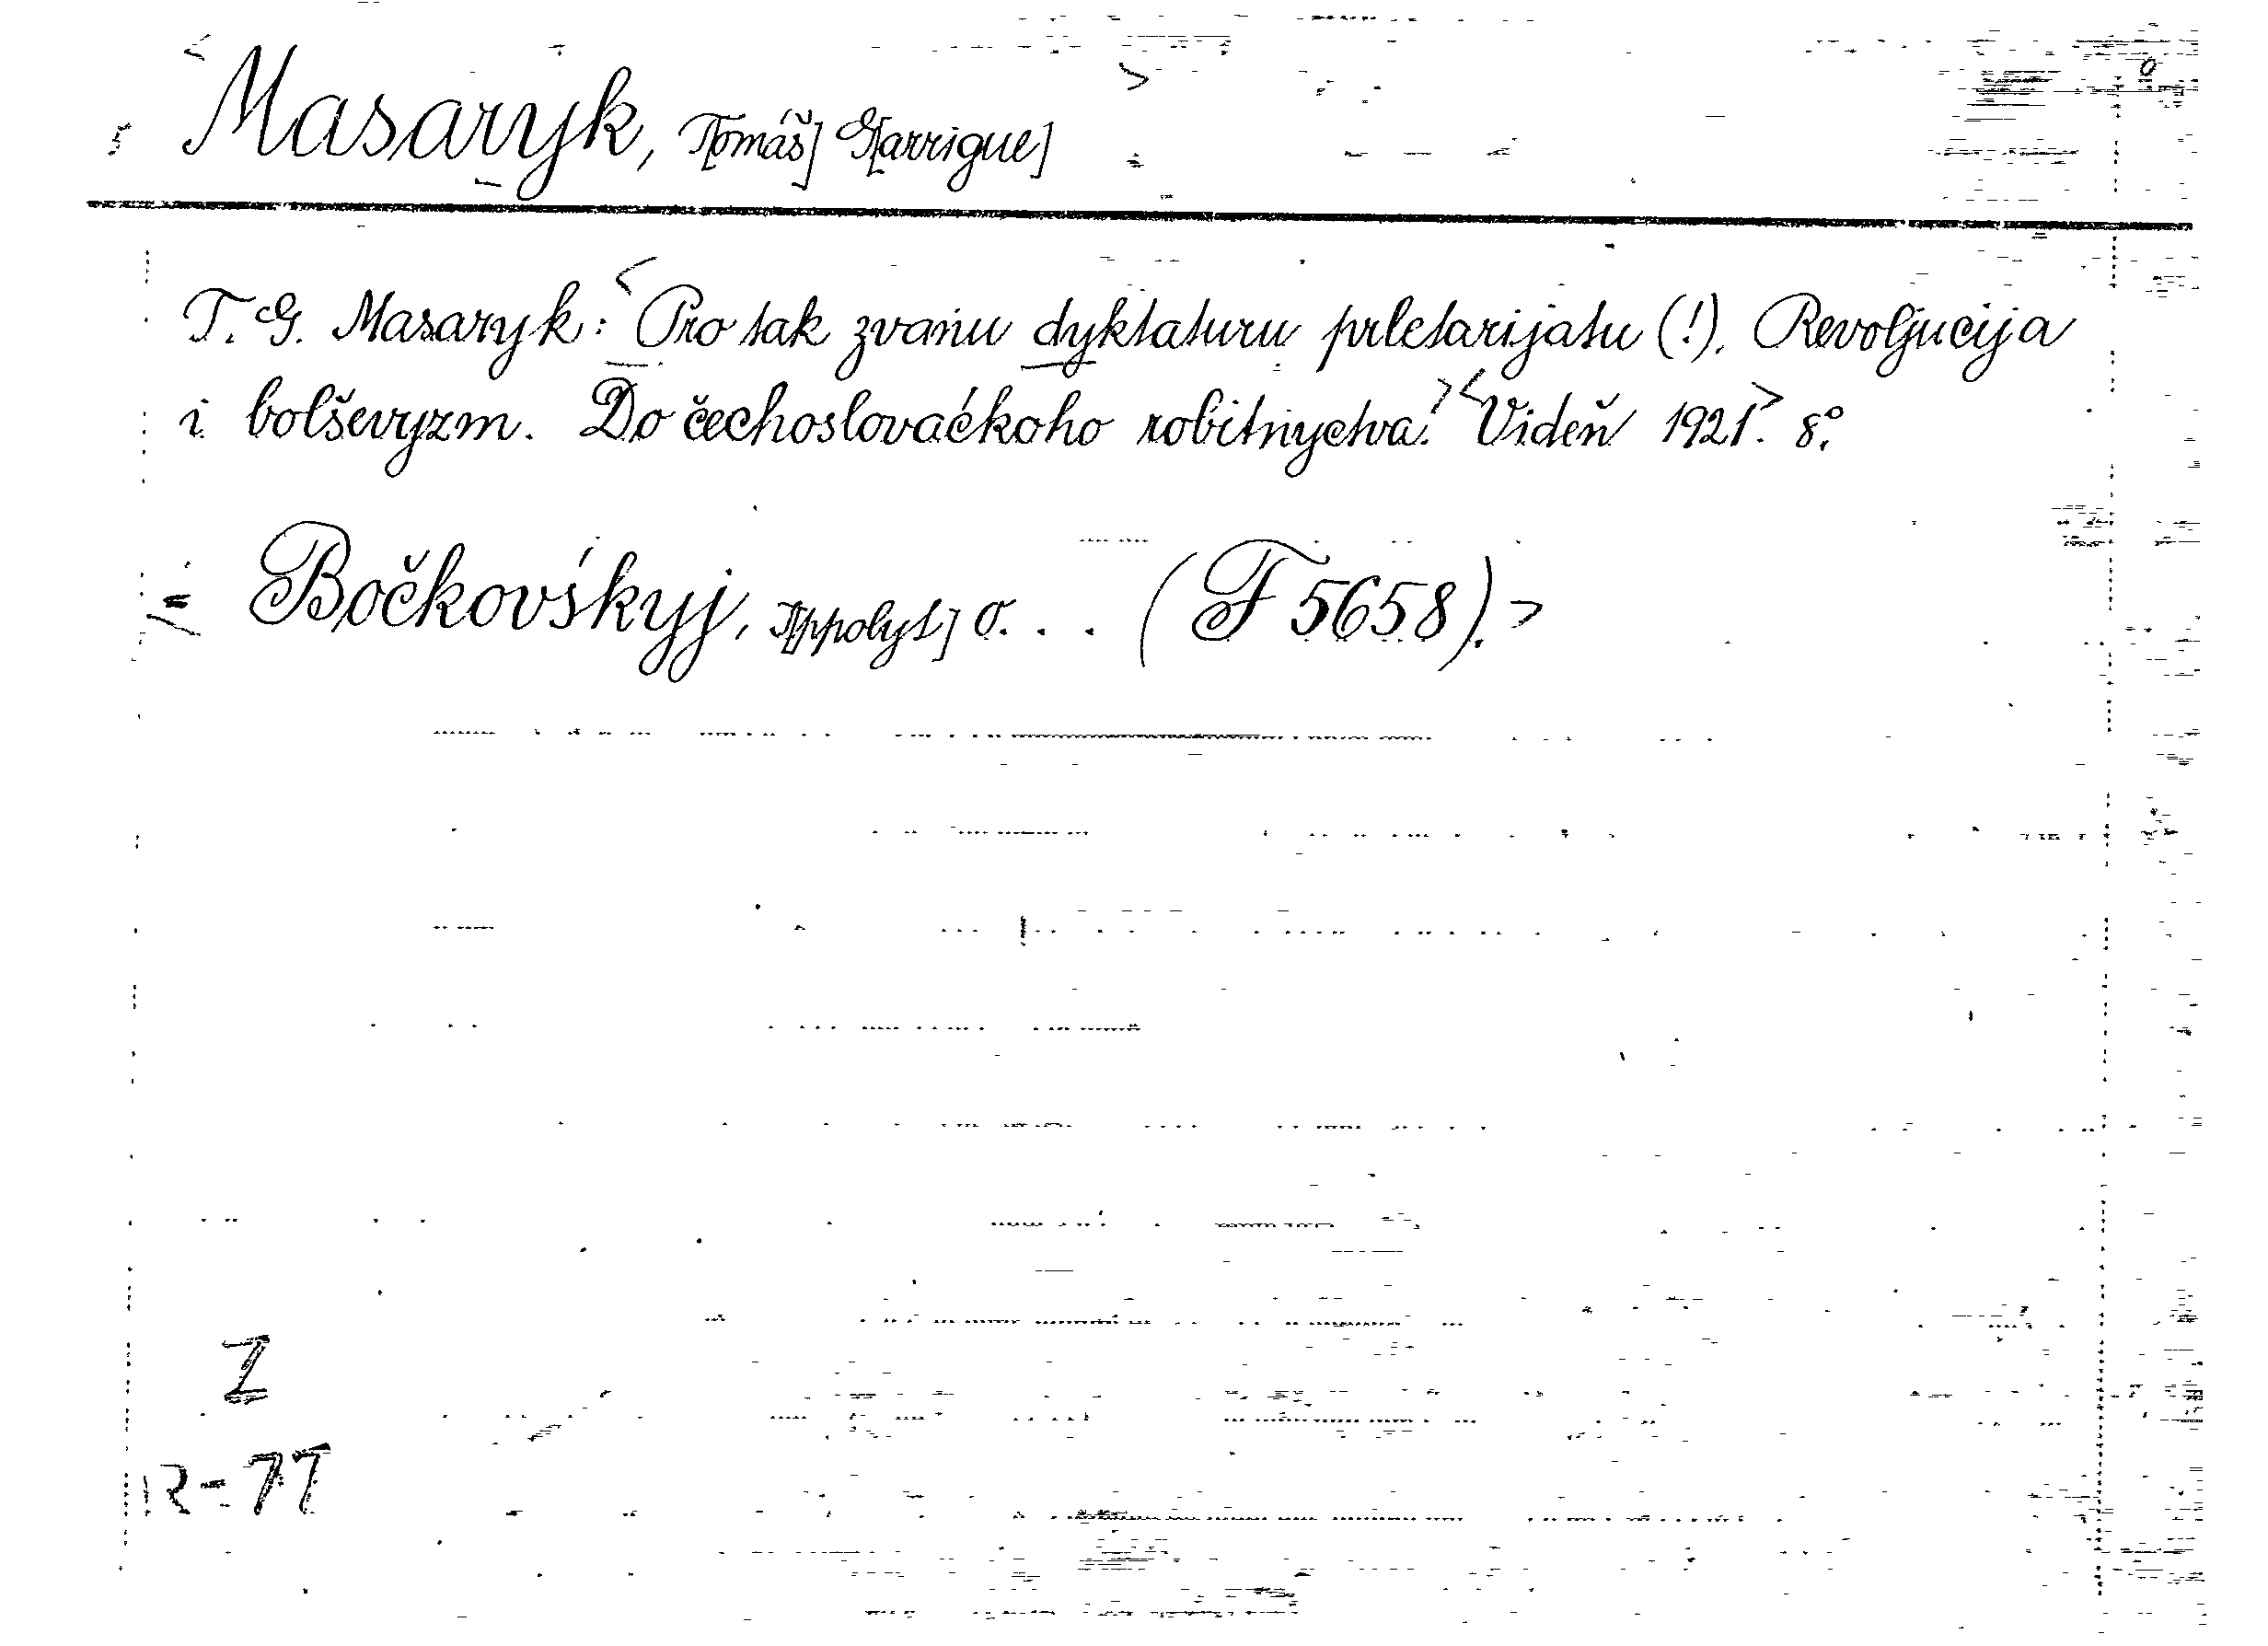 <Masaryk, T[omáš] G[arrigue]>
T. G. Masaryk: <Pro tak zvanu dyktaturu prletarijatu (!). Revoljucija
i bolševyzm. Do čechoslovaćkoho robitnyctva.> <Videň 1921>. 8°.
= Bočkovśkyj, I[ppolyt] O... (F 5658).>
Z
R-77